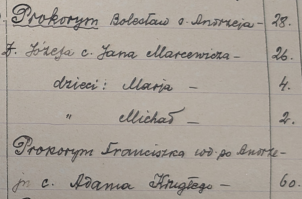 Prokorym Bolesław s. Andrzeja – 28.
ż. Józefa c. Jana Marcewicza – 26.
dzieci: Marja – 4.
" Michał – 2.
Prokorym Franciszka wd. po Andrze-
ju c. Adama Kruglego – 60.